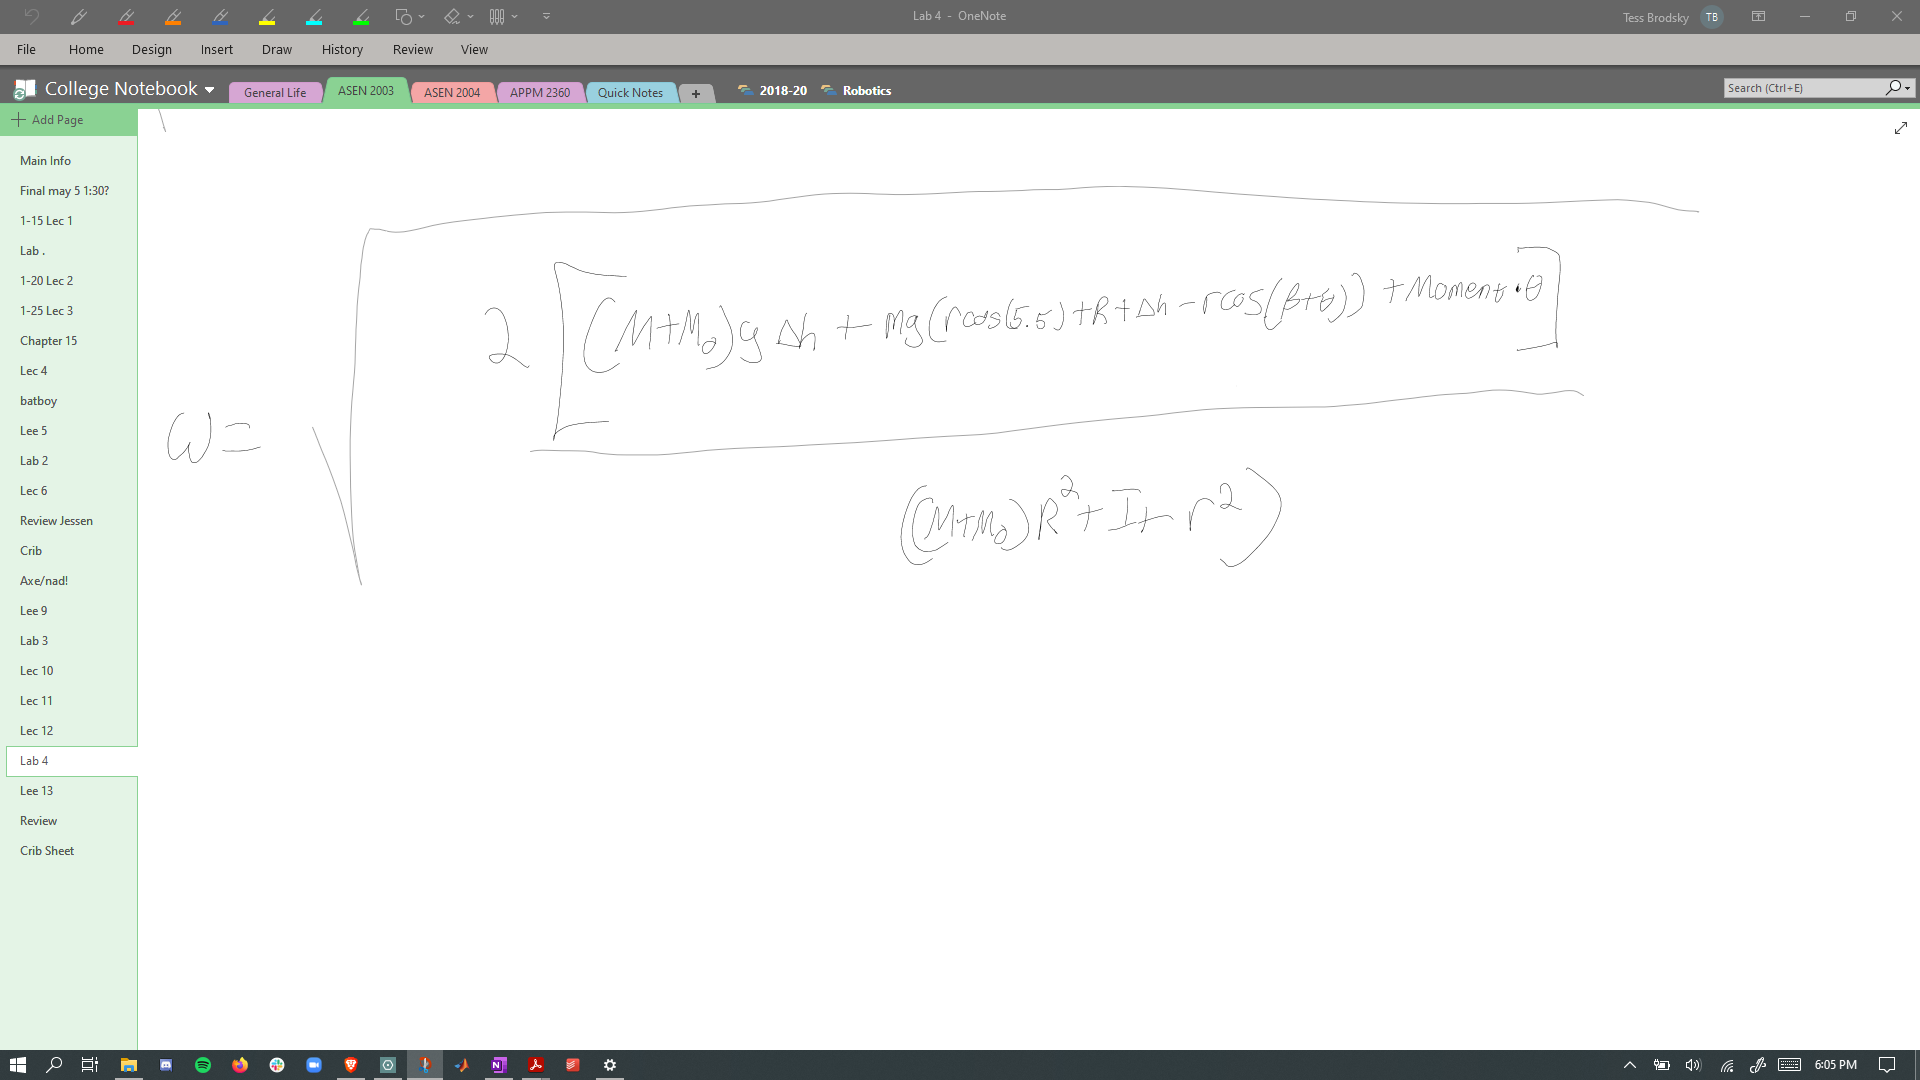 Lab 4 - OneNote
Tess Brodsky TB
File Home Design Insert Draw History Review View
College Notebook General Life ASEN 2003 ASEN 2004 APPM 2360 Quick Notes + 2018-20 Robotics Search (Ctrl+E)
Add Page
Main Info
Final may 5 1:30?
1-15 Lec 1
Lab .
1-20 Lec 2
1-25 Lec 3
Chapter 15
Lec 4
batboy
Lee 5
Lab 2
Lec 6
Review Jessen
Crib
Axe/nad!
Lee 9
Lab 3
Lec 10
Lec 11
Lec 12
Lab 4
Lee 13
Review
Crib Sheet
2 [(M+M₀)g Δh + mg(rcos(5.5)+R+Δh-rcos(β+θ)) + Moment·θ]
ω = √
((M+M₀)R²+I+r²)
6:05 PM